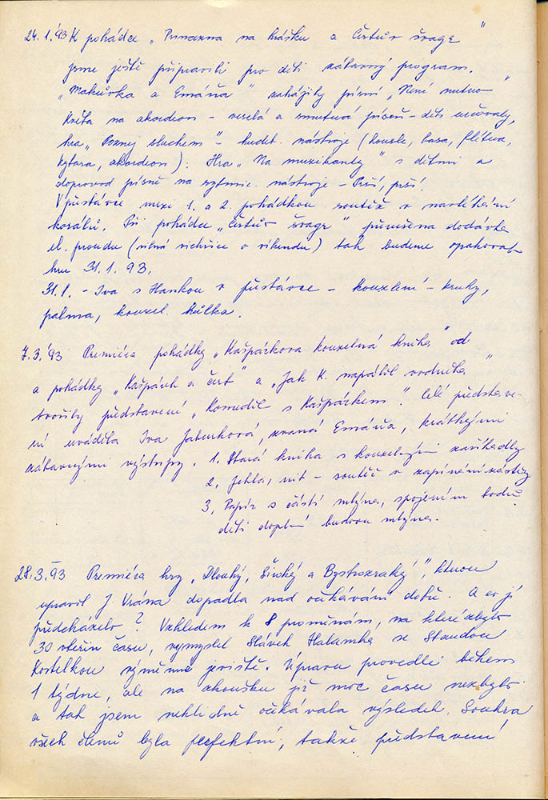 24.1.93 K pohádce „Princezna na hrášku a Čertův švagr"
jsme ještě připravili pro děti zábavný program.
„Makůrka a Emáňa" zahájily písní „Není nutno"
Květa na akordeon - veselá a smutná píseň - děti určovaly,
hra „Poznej sluchem" - hudeb. nástroje (housle, basa, flétna,
kytara, akordeon). Hra „Na muzikanty" s dětmi a
doprovod písně na rytmic. nástroje - Prší, prší.
V přestávce mezi 1. a 2. pohádkou soutěž v navlékání
korálů. Při pohádce „Čertův švagr" přerušena dodávka
el. proudu (silná vichřice o víkendu) tak budeme opakovat
hru 31.1.93.
31.1. - Iva s Hankou v přestávce - kouzlení - kruhy,
palma, kouzel. hůlka.
7.3.'93 Premiéra pohádky „Kašpárkova kouzelná kniha" od
a pohádky „Kašpárek a čert" a „Jak K. napálil vodníka"
tvořily představení „Komedie s Kašpárkem". Celé představe-
ní uváděla Iva, zvaná Emáňa, krátkými
zábavnými výstupy. 1. Stará kniha s kouzelnými zaříkadly
2. Jehla, nit - soutěž v zapínání zástěry
3. Papír s částí mlýna, spojením bodů
děti doplní budovu mlýna.
28.3.93 Premiéra hry „Dlouhý, Široký a Bystrozraký", kterou
upravil J. Vrána dopadla nad očekávání dobře. A co jí
předcházelo? Vzhledem k 8 proměnám, na které zbylo
30 vteřin času, vymyslel Slávek Halamka se Standou
Kostelkou výměnné jeviště. Úpravu provedli během
1 týdne, ale na zkoušku již moc času nezbylo
a tak jsem neklidně očekávala výsledek. Souhra
všech členů byla perfektní, takže představení